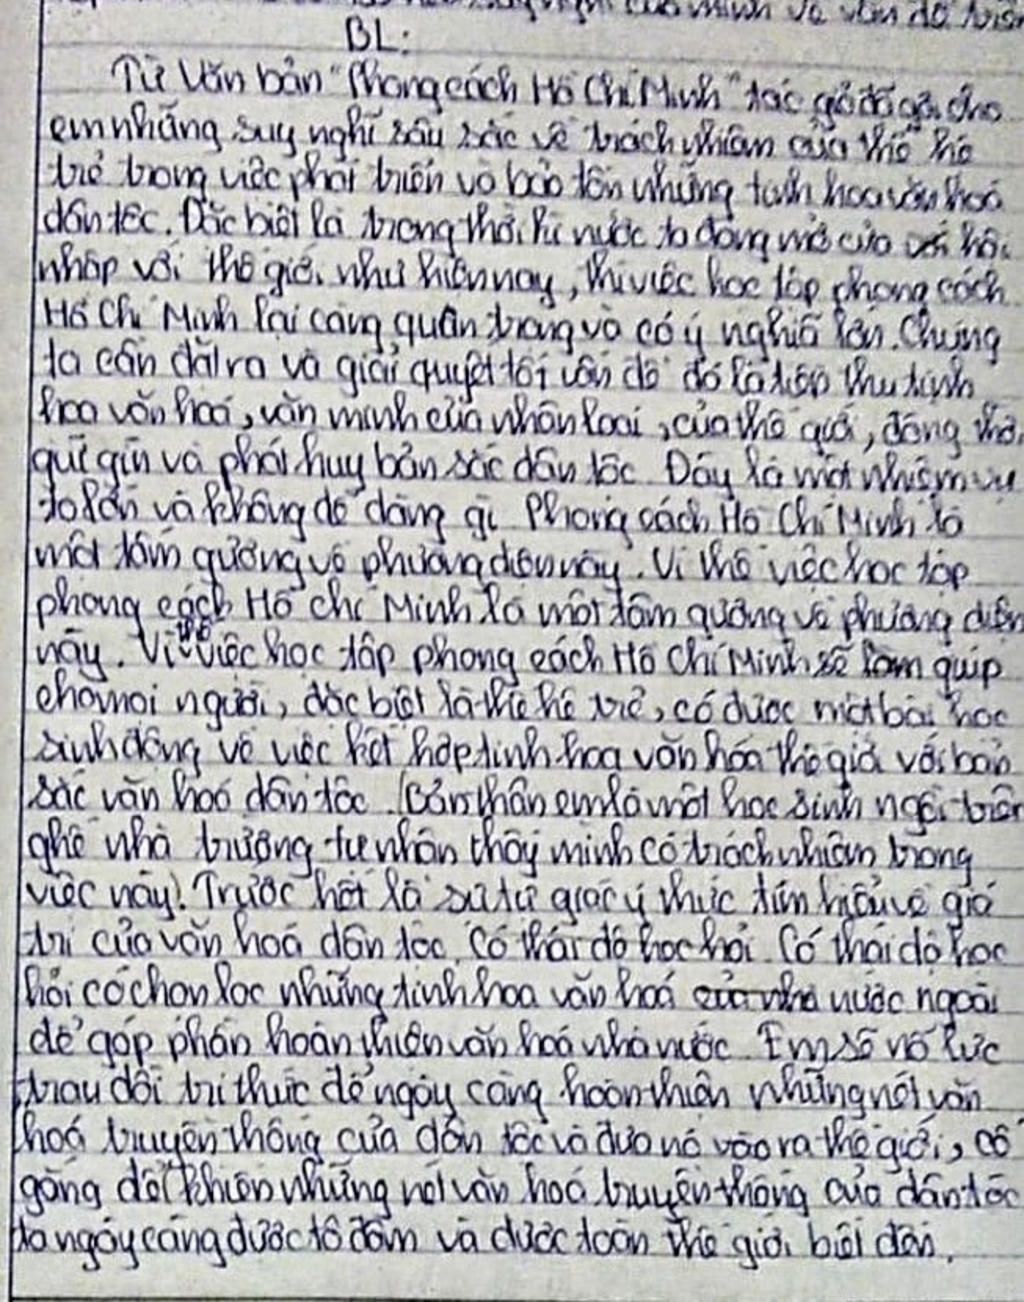 suy nghĩ của mình về vấn đề trên
BL:
Từ Văn bản "Phong cách Hồ Chí Minh" tác giả đã gợi cho
em những suy nghĩ sâu sắc về trách nhiệm của thế hệ
trẻ trong việc phát triển và bảo tồn những tinh hoa văn hoá
dân tộc. Đặc biệt là trong thời kì nước ta đang mở cửa với hội
nhập với thế giới như hiện nay, thì việc học tập phong cách
Hồ Chí Minh lại càng quan trọng và có ý nghĩa lớn. Chúng
ta cần đặt ra và giải quyết tốt vấn đề đó là tiếp thu tinh
hoa văn hoá, văn minh của nhân loại, của thế giới, đồng thời
giữ gìn và phát huy bản sắc dân tộc. Đây là một nhiệm vụ
to lớn và không dễ dàng gì. Phong cách Hồ Chí Minh là
một tấm gương về phương diện này. Vì thế việc học tập
phong cách Hồ Chí Minh là một tấm gương về phương diện
này. Vì thế việc học tập phong cách Hồ Chí Minh sẽ làm giúp
cho mọi người, đặc biệt là thế hệ trẻ, có được một bài học
sinh động về việc kết hợp tinh hoa văn hóa thế giới với bản
sắc văn hoá dân tộc. Bản thân em là một học sinh ngồi trên
ghế nhà trường tự nhận thấy mình có trách nhiệm trong
việc này! Trước hết là sự tự giác ý thức tìm hiểu về giá
trị của văn hoá dân tộc. Có thái độ học hỏi. Có thái độ học
hỏi có chọn lọc những tinh hoa văn hoá của nước ngoài
để góp phần hoàn thiện văn hoá nhà nước. Em sẽ nỗ lực
trau dồi tri thức để ngày càng hoàn thiện những nét văn
hoá truyền thống của dân tộc và đưa nó vào ra thế giới, cố
gắng để khiến những nét văn hoá truyền thống của dân tộc
ta ngày càng được tô đậm và được toàn thế giới biết đến.